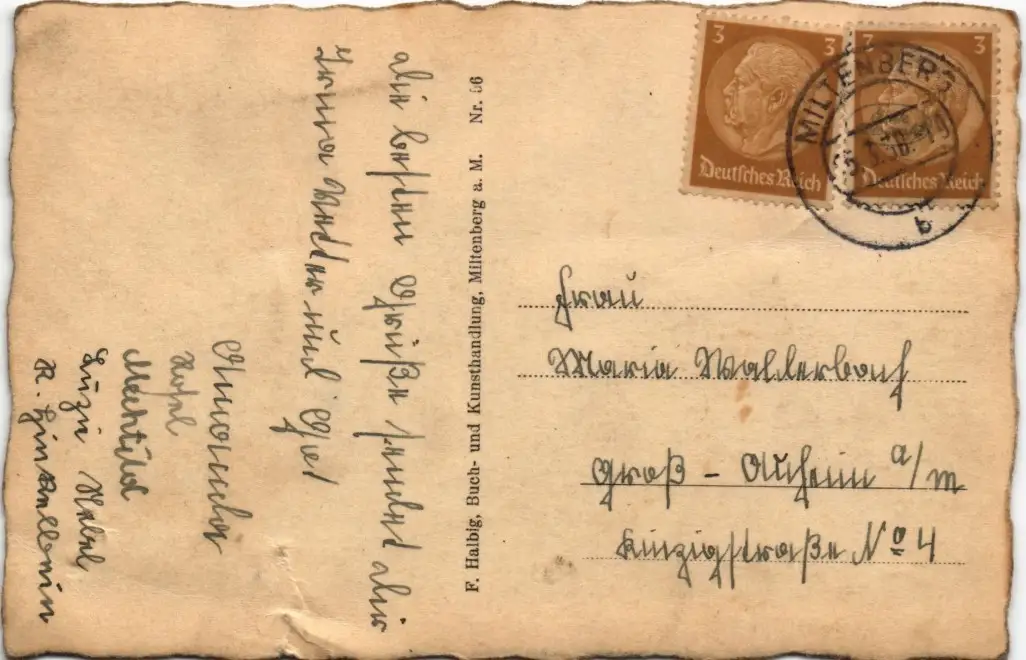 die besten Grüße sendet dir
Irma Weber und Gg.
Annamicha
Rosel
Mechtild
Luzie Nebel
R.
F. Halbig, Buch- und Kunsthandlung, Miltenberg a. M. Nr. 56
3 3
Deutsches Reich
3 3
Deutsches Reich
MILTENBERG
b
Frau
Maria Wallerbach
Groß - Auheim a/m
Kinzigstraße No 4